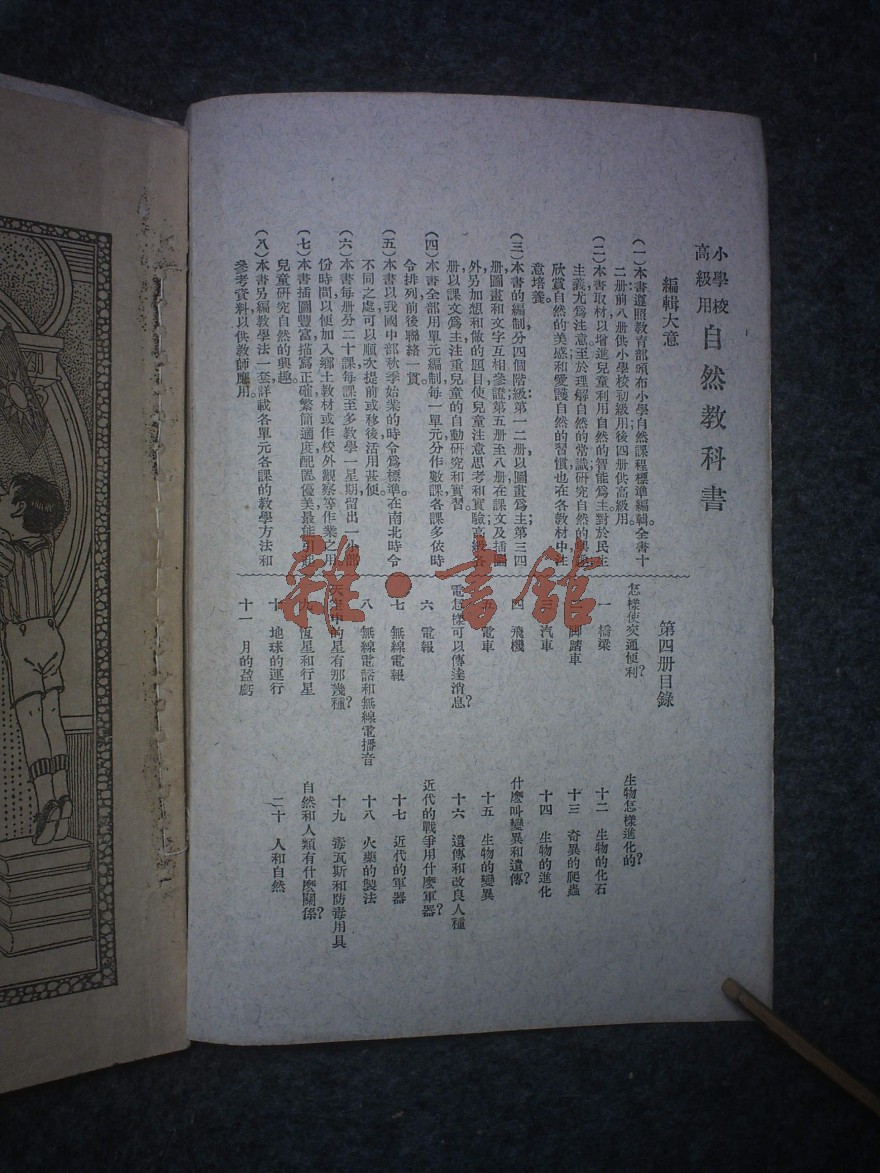 小學校
高級用
自然教科書
編輯大意
(一)本書遵照教育部頒布小學自然課程標準編輯。全書十
二册前八册供小學校初級用後四册供高級用。
(二)本書取材以增進兒童利用自然的智能爲主對於民生
主義尤爲注意至於理解自然的常識研究自然的興趣
欣賞自然的美感和愛護自然的習慣也在各教材中注
意培養。
(三)本書的編制分四個階級第一二册以圖畫爲主第三四
册圖畫和文字互相參證第五册至八册在課文及插圖
外另加想和做的題目使兒童注意思考和實驗高級各
册以課文爲主注重兒童的自動研究和實習。
(四)本書全部用單元編制每一單元分作數課各課多依時
令排列前後聯絡一貫。
(五)本書以我國中部秋季始業的時令爲標準。在南北時令
不同之處可以順次提前或移後活用甚便。
(六)本書每册分二十課每課至多教學一星期留出一小部
份時間以便加入鄉土教材或作校外觀察等作業之用
(七)本書插圖豐富描寫正確繁簡適度配置優美最能引起
兒童研究自然的興趣。
(八)本書另編教學法一套詳載各單元各課的教學方法和
參考資料以供教師應用。
第四册目錄
怎樣使交通便利?
一 橋梁
脚踏車
汽車
四 飛機
五 電車
電怎樣可以傳達消息?
六 電報
七 無線電報
八 無線電話和無線電播音
天空中的星有那幾種?
九 恆星和行星
十 地球的運行
十一 月的盈虧
生物怎樣進化的?
十二 生物的化石
十三 奇異的爬蟲
十四 生物的進化
什麽叫變異和遺傳?
十五 生物的變異
十六 遺傳和改良人種
近代的戰爭用什麽軍器?
十七 近代的軍器
十八 火藥的製法
十九 毒瓦斯和防毒用具
自然和人類有什麽關係?
二十 人和自然
雜·書館